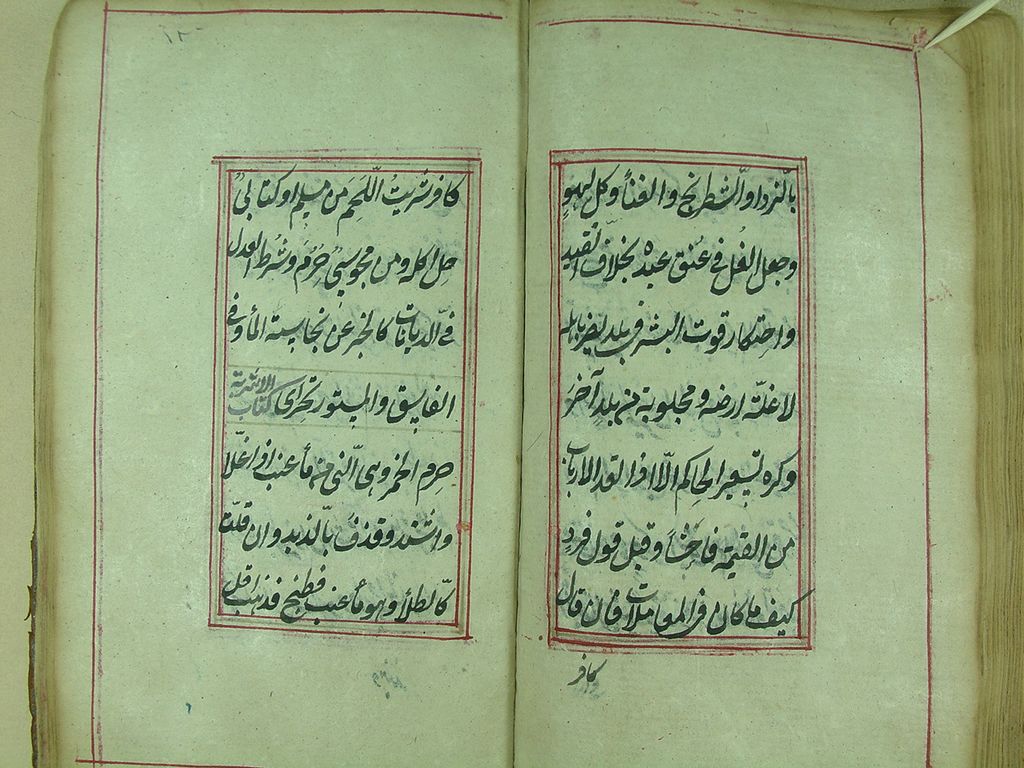 بالنرد او الشطرنج والغناء وكل لهو
وجعل الغل في عنق عبده بخلاف التقييد
واحتكار قوت البشر في بلد يضر باهله
لا غلة ارضه ومجلوبة من بلد آخر
وكره تسعير الحاكم الّا اذا تعد الارباب
من القيمة فاحشا وقبل قول فرد
كيف ما كان في المعاملات فان قال
كافر
كافر شريت اللّحم من مسلم او كتابي
حل اكله ومن مجوسي حرم وشرط العدل
في الديانات كالخبر عن نجاسة الماء وفي
الفاسق والمستور تحرى كتاب الاشربة
حرم الخمر وهي النّي من ماء عنب اذا غلا
واشتد وقذف بالزبد وان قلت
كالطلاء وهو ماء عنب طبخ فذهب اقل